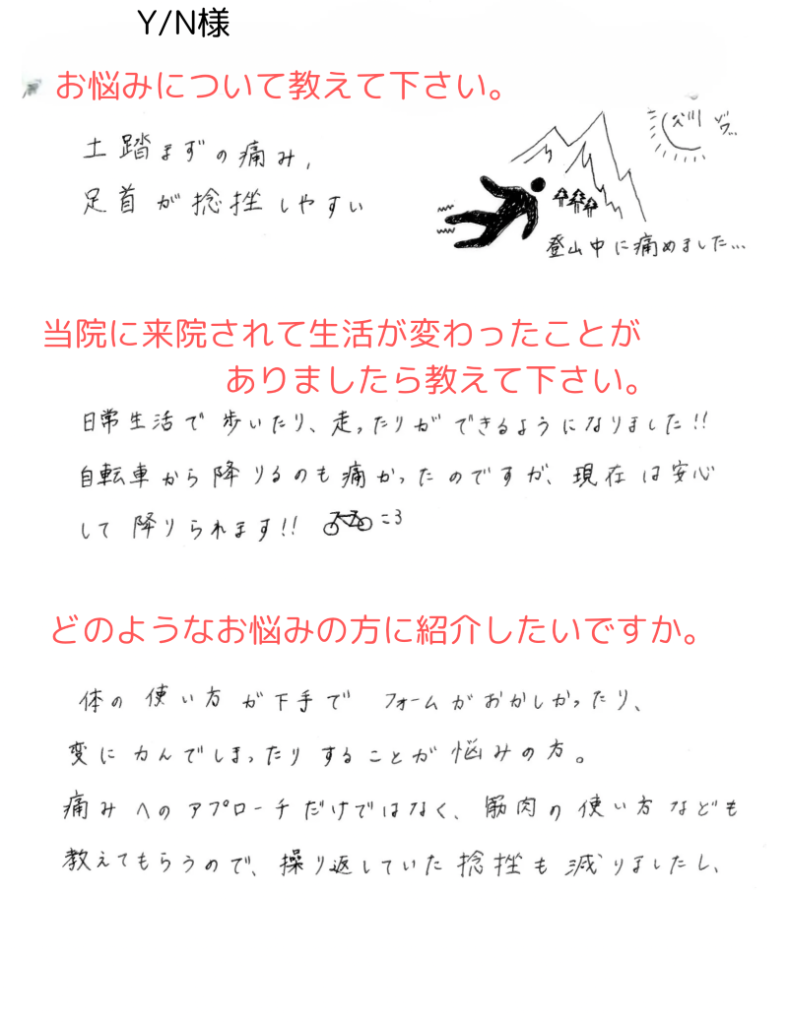 Y/N様
お悩みについて教えて下さい。
土踏まずの痛み,
足首が捻挫しやすい
登山中に痛めました…
当院に来院されて生活が変わったことが
ありましたら教えて下さい。
日常生活で歩いたり、走ったりができるようになりました!!
自転車から降りるのも痛かったのですが、現在は安心
して降りられます!!
どのようなお悩みの方に紹介したいですか。
体の使い方が下手でフォームがおかしかったり、
変に力んでしまったりすることが悩みの方。
痛みへのアプローチだけではなく、筋肉の使い方なども
教えてもらうので、繰り返していた捻挫も減りましたし、